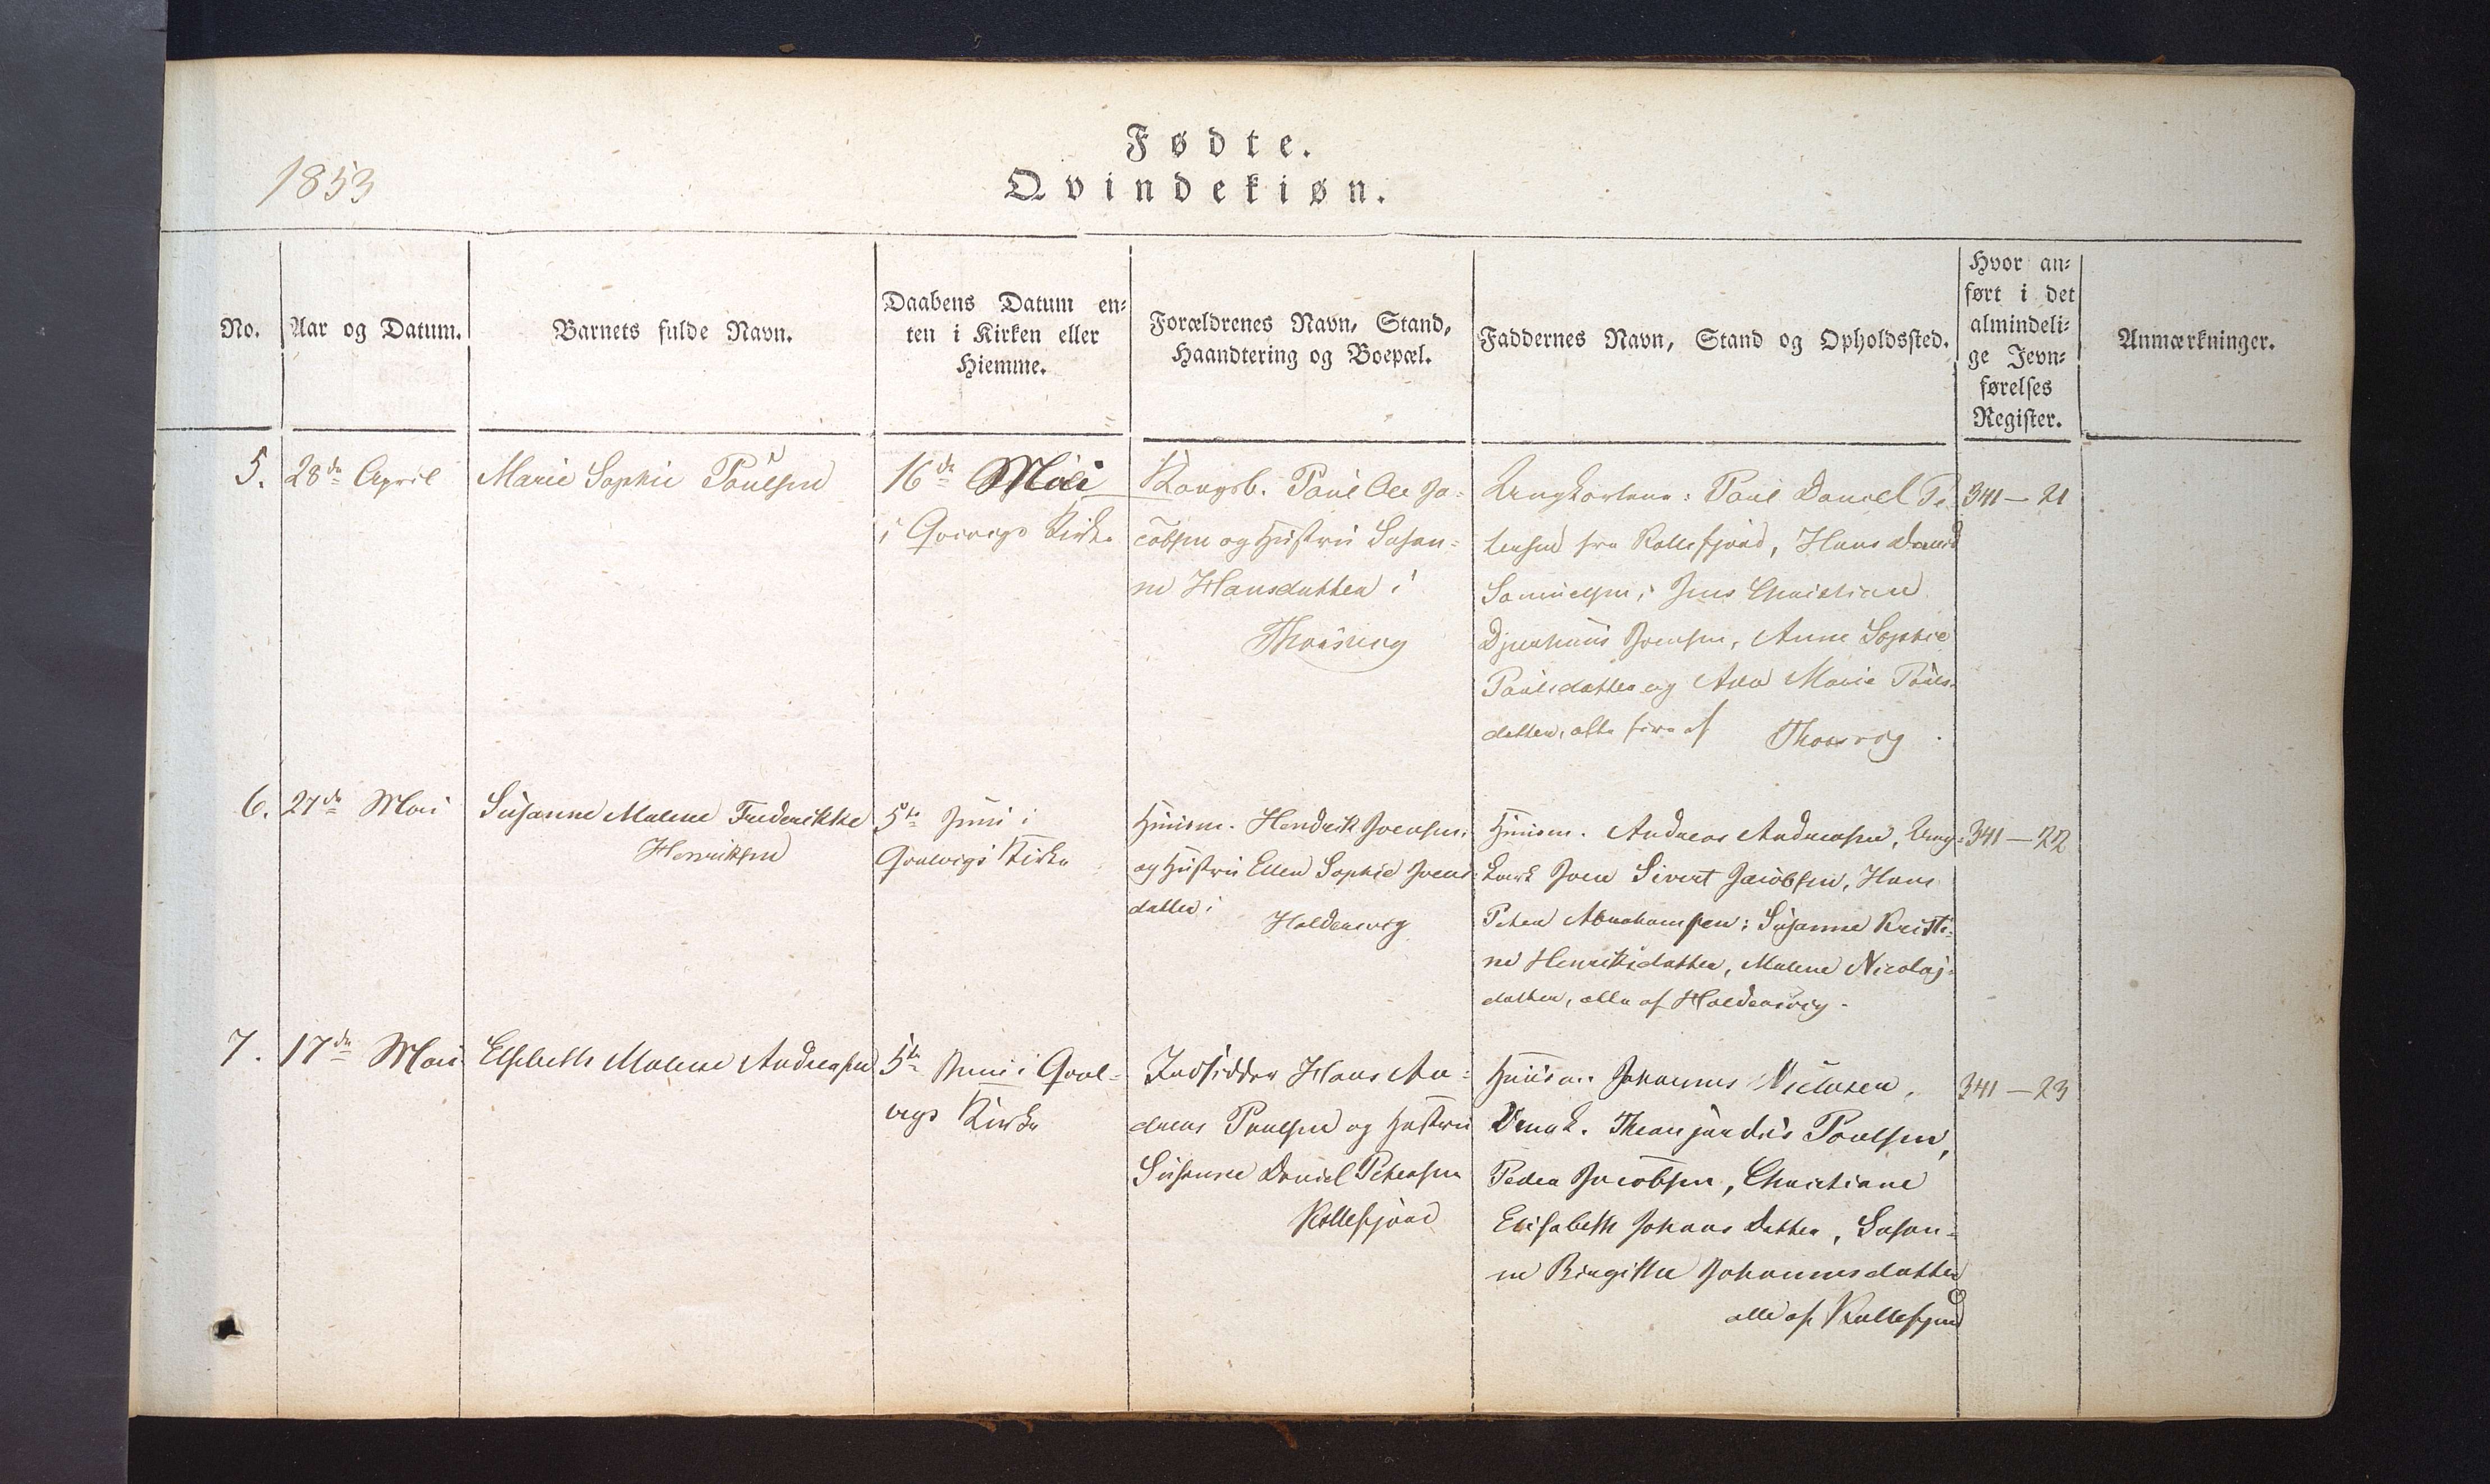 1853
Fødte.
Qvindekiøn.
No.
Aar og Datum.
Barnets fulde Navn.
Daabens Datum en-
ten i Kirken eller
Hiemme.
Forældrenes Navn, Stand,
Haandtering og Boepæl.
Faddernes Navn, Stand og Opholdssted.
Hvor an-
ført i det
almindeli-
ge Jevn-
førelses
Register.
Anmærkninger.
5.
28de April
Marie Sophie Poulsen
16de Mai
i Kirke
Kongsb. Paul Ja-
cobsen og Hustru Susan-
ne Hansdatter i
Thorsvig
Ungkarlene: Paul Daniel Pe-
tersen fra Kollefjord, Hans David
Samuelsen, Jens Christian
Djurhuus Joensen, Anne Sophie
Poulsdatter og Anna Marie Pouls-
datter, alle fire af Thorsvig.
341-21
6.
27de Mai
Susanne Malene Frederikke
Henriksen
5te Juni i
Qvalvigs Kirke
Huusm. Hendrik Joensen
og Hustru Ellen Sophie Joens-
datter i
Haldensvig
Huusm. Andreas Andreasen, Ung-
karl Joen Sivert Jacobsen, Hans
Peter Abrahamsen; Susanne Kristi-
ne Henriksdatter, Malene Nicolaj-
datter, alle af Haldensvig.
341-22
7.
17de Mai
Elsebeth Malene Andreasen
5te Juni i Qval-
vigs Kirke
Indsidder Hans An-
dreas Poulsen og Hustru
Susanne Daniel Petersen
Kollefjord
Huusm. Johannes Nielsen,
Poulsen,
Peder Jacobsen, Christiane
Elisabeth Johans Datter, Susan-
ne Birgitte Johannesdatter
alle af Kollefjord
341-23